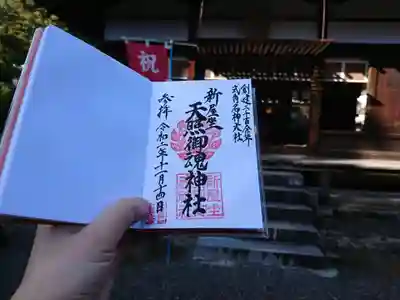 創建二千百余年
式内名神大社
新屋坐
天照御魂神社
参拝 令和二年十一月十四日
祝